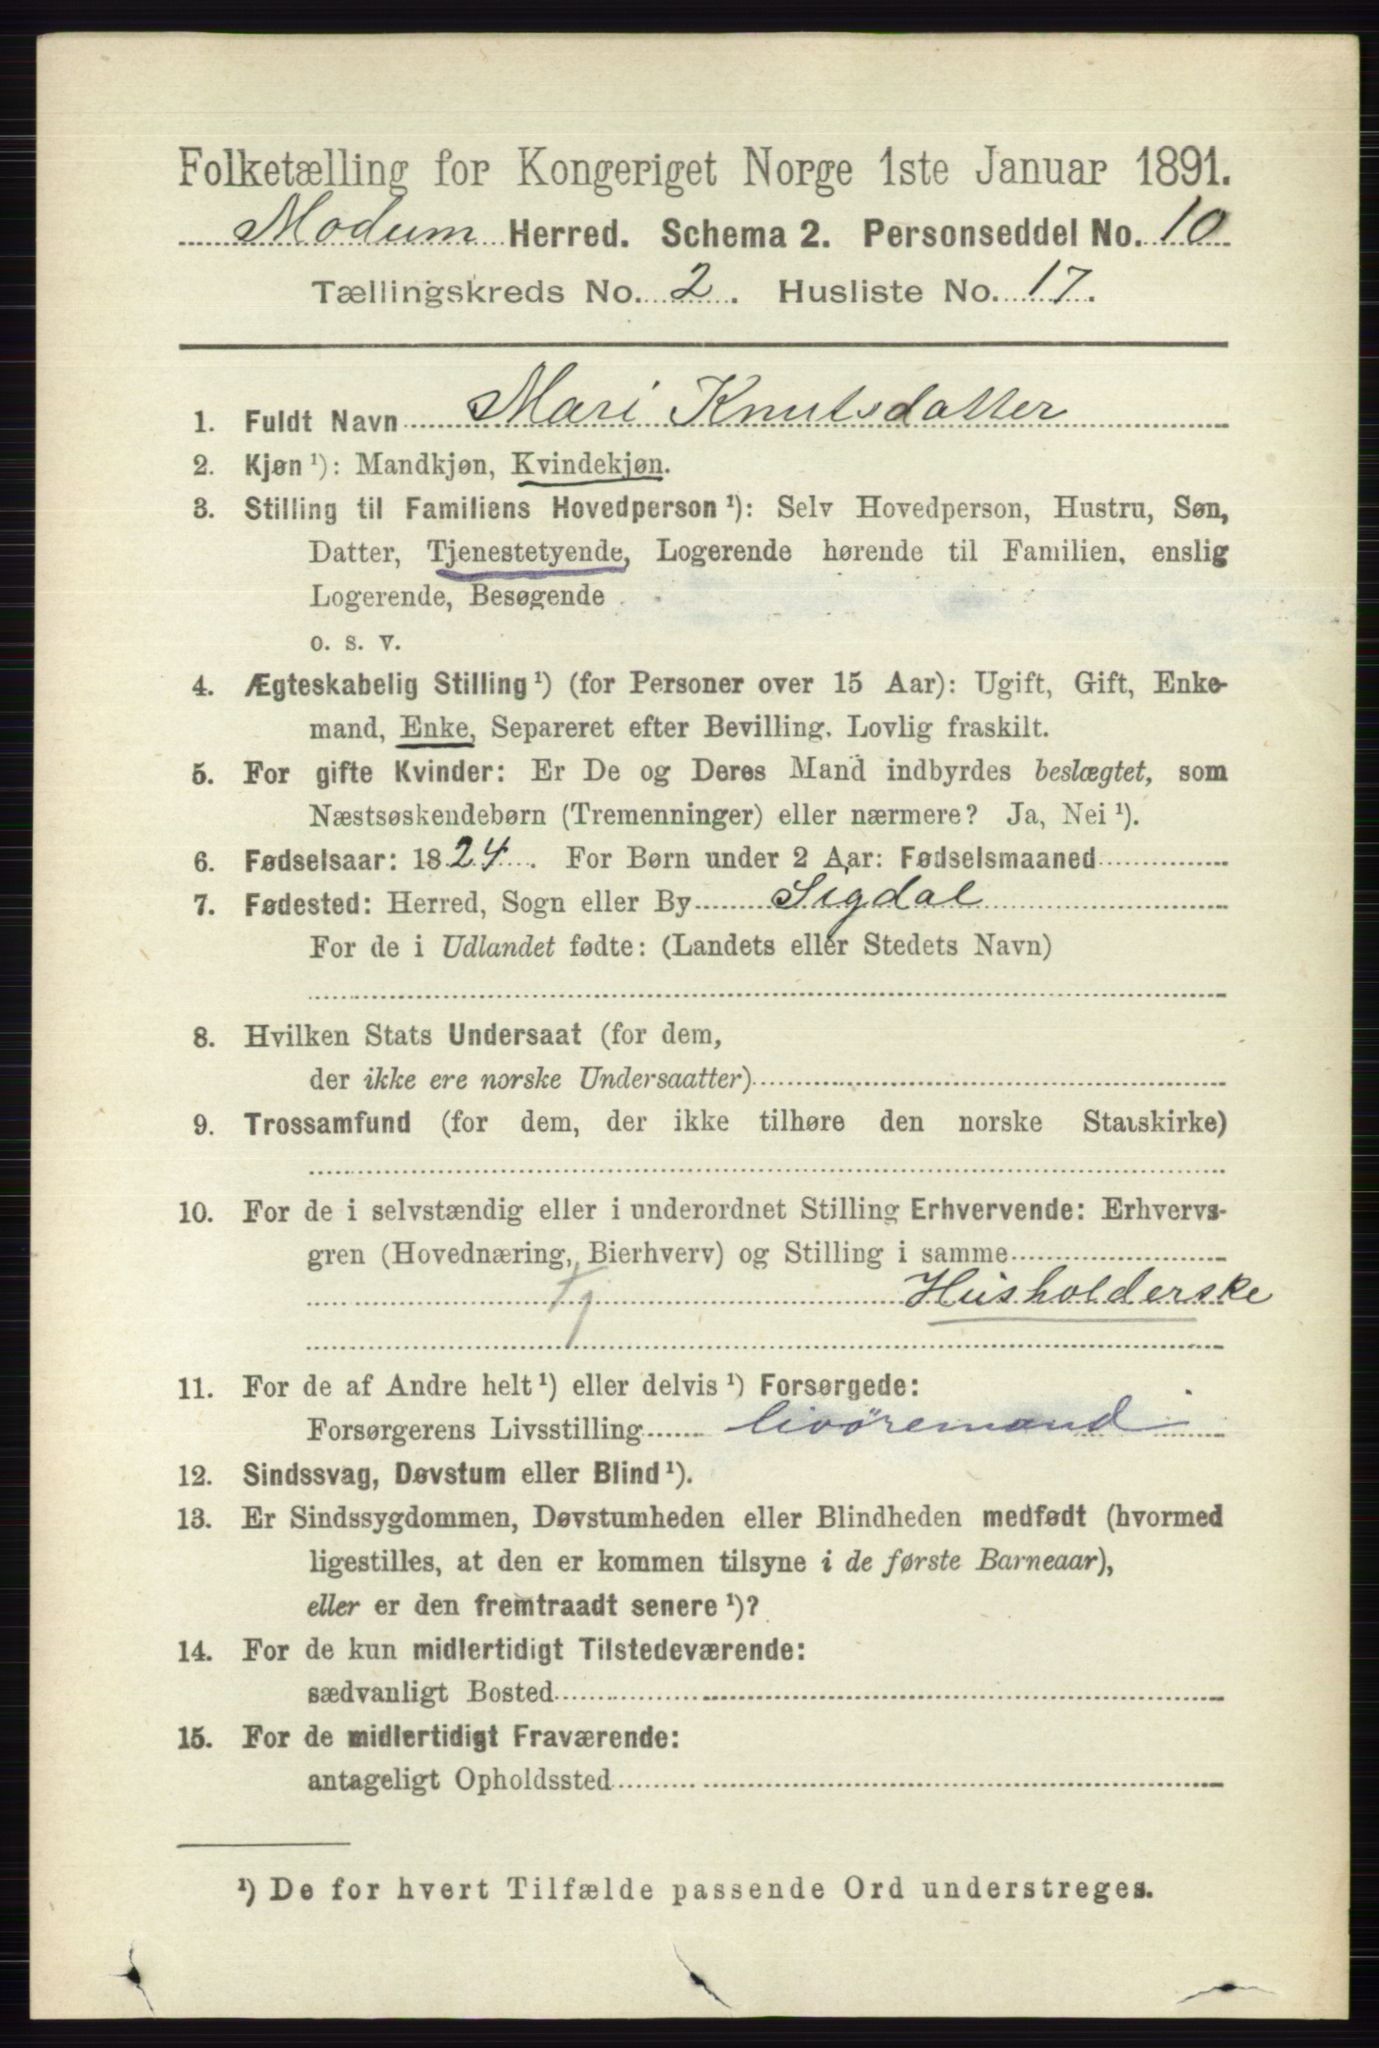 Folketælling for Kongeriget Norge 1ste Januar 1891.
Modum Herred. Schema 2. Personseddel No. 10
Tællingskreds No. 2. Husliste No. 17.
1. Fuldt Navn Mari Knutsdatter
2. Kjøn ¹): Mandkjøn, Kvindekjøn.
3. Stilling til Familiens Hovedperson ¹): Selv Hovedperson, Hustru, Søn,
Datter, Tjenestetyende, Logerende hørende til Familien, enslig
Logerende, Besøgende
o. s. v.
4. Ægteskabelig Stilling ¹) (for Personer over 15 Aar): Ugift, Gift, Enke-
mand, Enke, Separeret efter Bevilling. Lovlig fraskilt.
5. For gifte Kvinder: Er De og Deres Mand indbyrdes beslægtet, som
Næstsøskendebørn (Tremenninger) eller nærmere? Ja, Nei ¹).
6. Fødselsaar: 1824. For Børn under 2 Aar: Fødselsmaaned
7. Fødested: Herred, Sogn eller By Sigdal
For de i Udlandet fødte: (Landets eller Stedets Navn)
8. Hvilken Stats Undersaat (for dem,
der ikke ere norske Undersaatter)
9. Trossamfund (for dem, der ikke tilhøre den norske Statskirke)
10. For de i selvstændig eller i underordnet Stilling Erhvervende: Erhvervs-
gren (Hovednæring, Bierhverv) og Stilling i samme
tj Husholderske
11. For de af Andre helt ¹) eller delvis ¹) Forsørgede:
Forsørgerens Livsstilling livøremand
12. Sindssvag, Døvstum eller Blind ¹).
13. Er Sindssygdommen, Døvstumheden eller Blindheden medfødt (hvormed
ligestilles, at den er kommen tilsyne i de første Barneaar),
eller er den fremtraadt senere ¹)?
14. For de kun midlertidigt Tilstedeværende:
sædvanligt Bosted
15. For de midlertidigt Fraværende:
antageligt Opholdssted
¹) De for hvert Tilfælde passende Ord understreges.